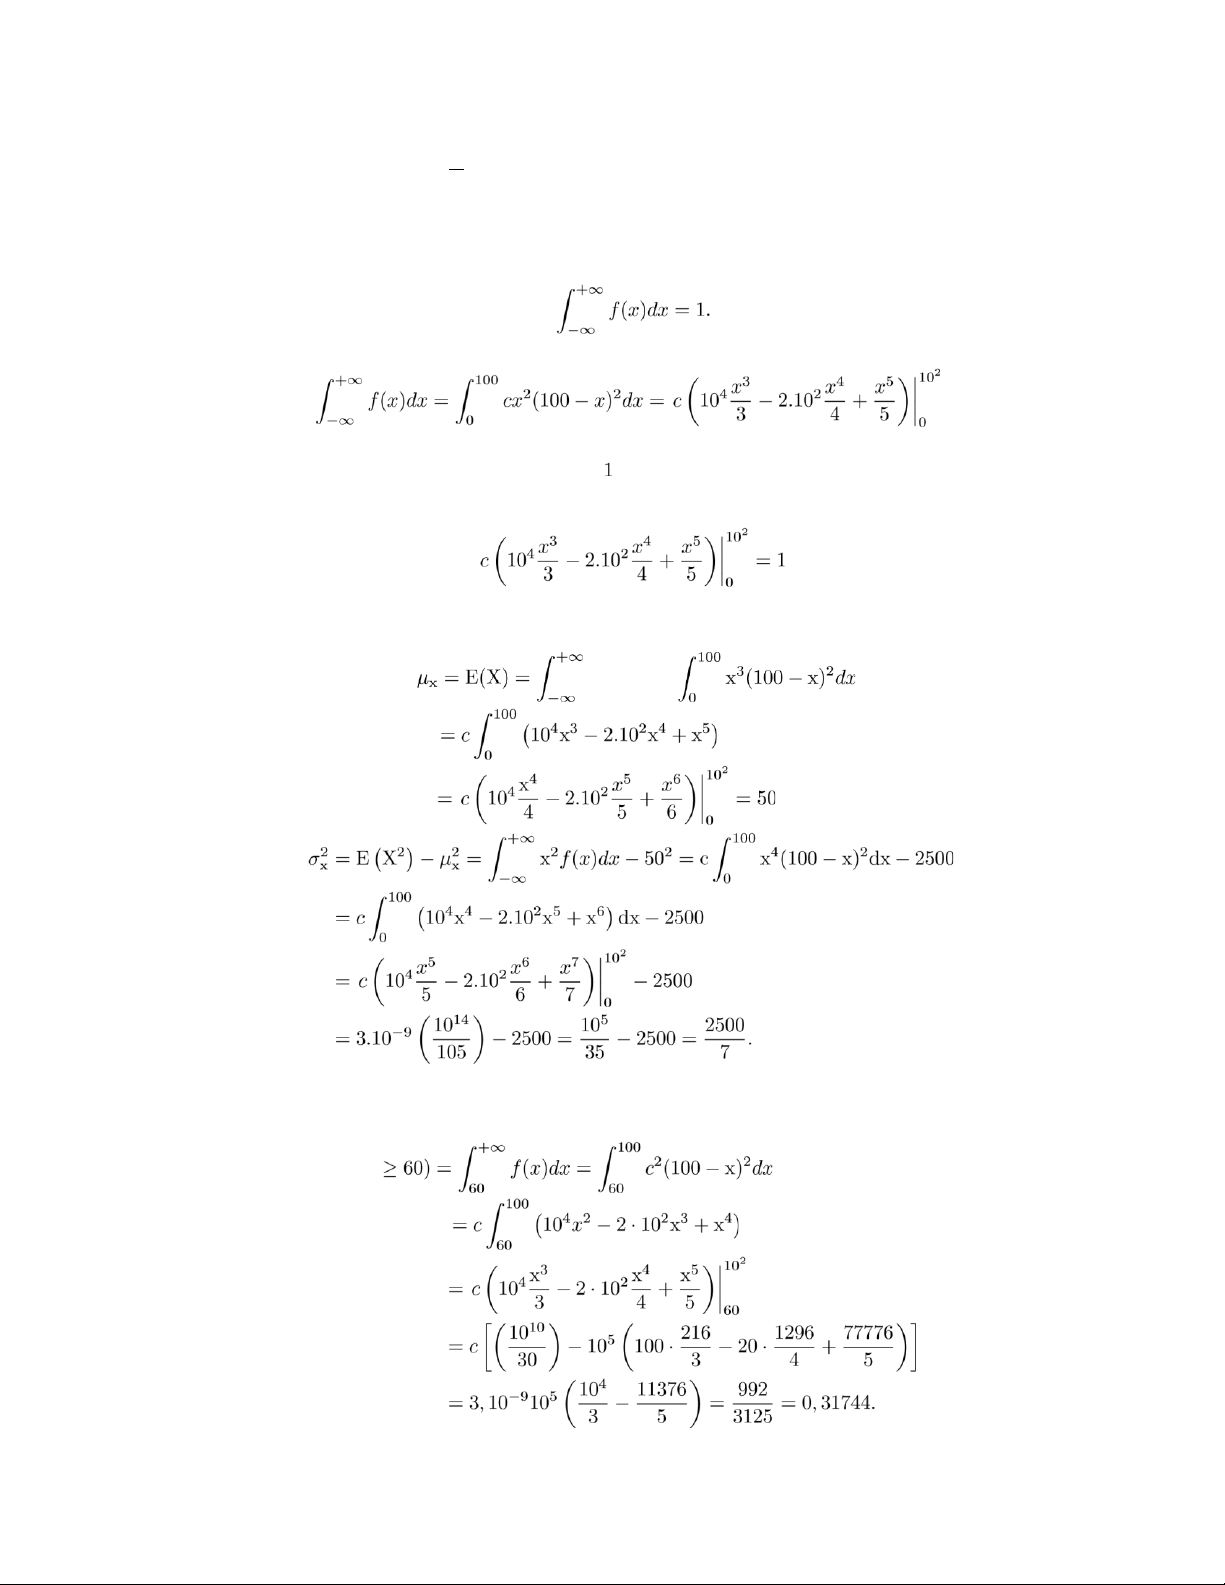 ∫_{−∞}^{+∞} f(x)dx = 1.
∫_{−∞}^{+∞} f(x)dx = ∫_0^{100} cx²(100 − x)²dx = c (10⁴ x³/3 − 2.10² x⁴/4 + x⁵/5) |_0^{10²}
1
c (10⁴ x³/3 − 2.10² x⁴/4 + x⁵/5) |_0^{10²} = 1
μ_x = E(X) = ∫_{−∞}^{+∞} ∫_0^{100} x³(100 − x)²dx
= c ∫_0^{100} (10⁴x³ − 2.10²x⁴ + x⁵)
= c (10⁴ x⁴/4 − 2.10² x⁵/5 + x⁶/6) |_0^{10²} = 50
σ_x² = E (X²) − μ_x² = ∫_{−∞}^{+∞} x²f(x)dx − 50² = c ∫_0^{100} x⁴(100 − x)²dx − 2500
= c ∫_0^{100} (10⁴x⁴ − 2.10²x⁵ + x⁶) dx − 2500
= c (10⁴ x⁵/5 − 2.10² x⁶/6 + x⁷/7) |_0^{10²} − 2500
= 3.10⁻⁹ (10¹⁴/105) − 2500 = 10⁵/35 − 2500 = 2500/7.
≥ 60) = ∫_{60}^{+∞} f(x)dx = ∫_{60}^{100} c²(100 − x)²dx
= c ∫_{60}^{100} (10⁴x² − 2 · 10²x³ + x⁴)
= c (10⁴ x³/3 − 2 · 10² x⁴/4 + x⁵/5) |_{60}^{10²}
= c [(10¹⁰/30) − 10⁵ (100 · 216/3 − 20 · 1296/4 + 77776/5)]
= 3, 10⁻⁹10⁵ (10⁴/3 − 11376/5) = 992/3125 = 0, 31744.